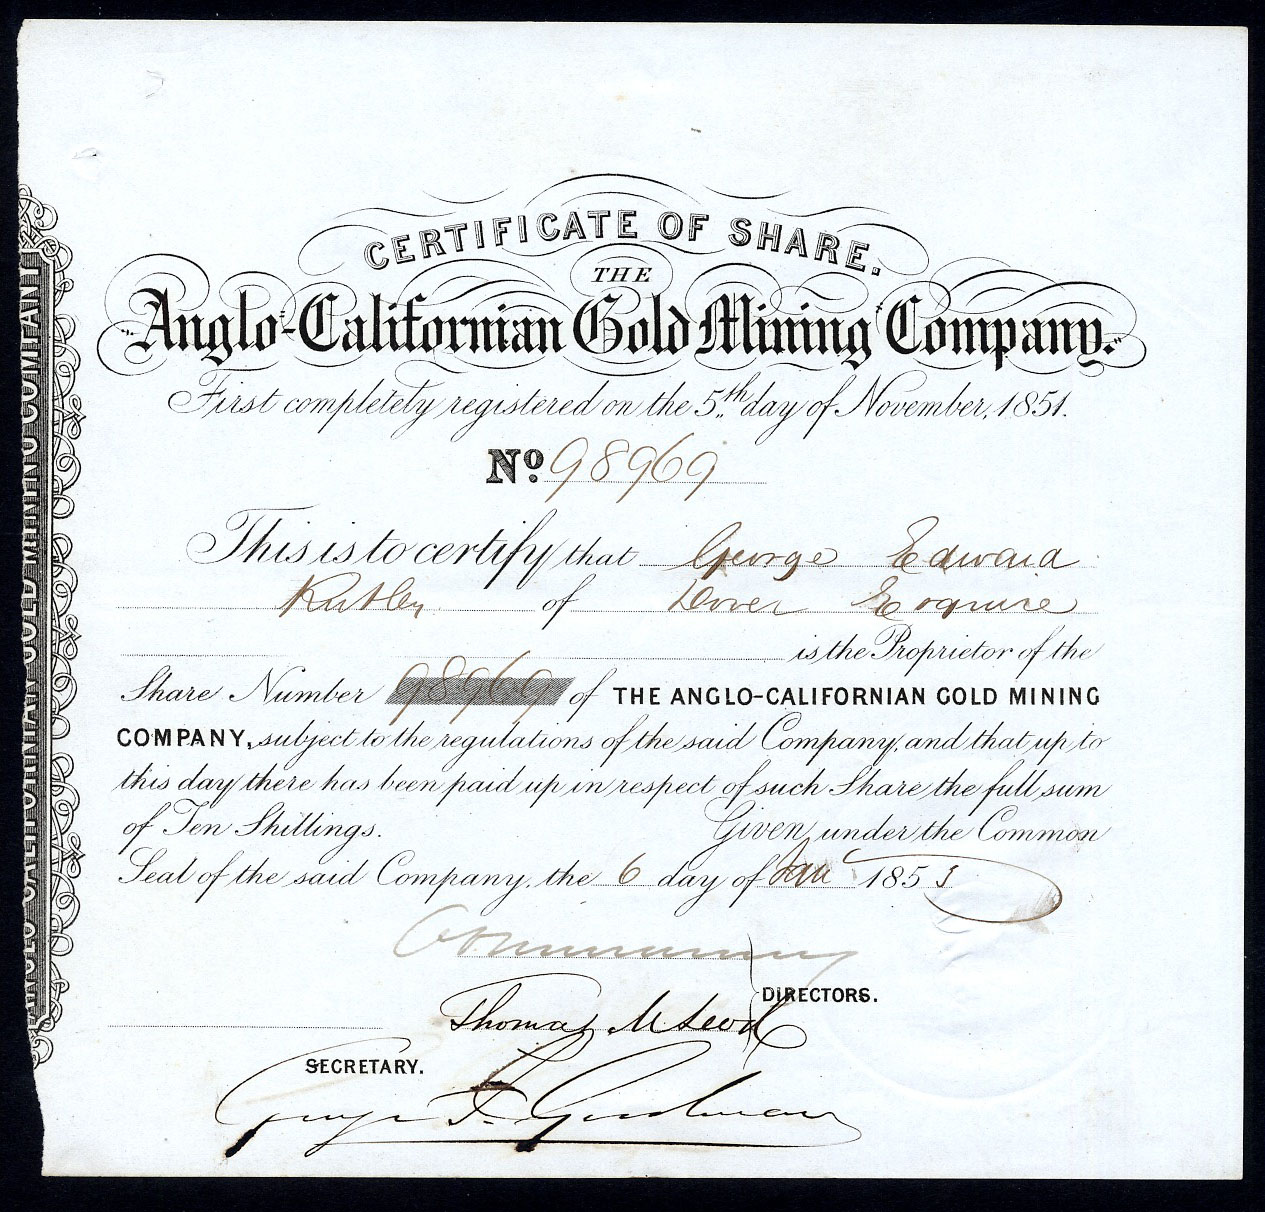 CERTIFICATE OF SHARE.
THE
"Anglo-Californian Gold Mining" Company."
First completely registered on the 5th day of November, 1851.
No. 98969
This is to certify that George Edward
Rutley of Dover Esquire
is the Proprietor of the
Share Number 98969 of THE ANGLO-CALIFORNIAN GOLD MINING
COMPANY, subject to the regulations of the said Company, and that up to
this day there has been paid up in respect of such Share the full sum
of Ten Shillings. Given under the Common
Seal of the said Company, the 6 day of Jan 1853
DIRECTORS.
Thomas McLeod
SECRETARY.
George F. Goodman
ANGLO-CALIFORNIAN GOLD MINING COMPANY